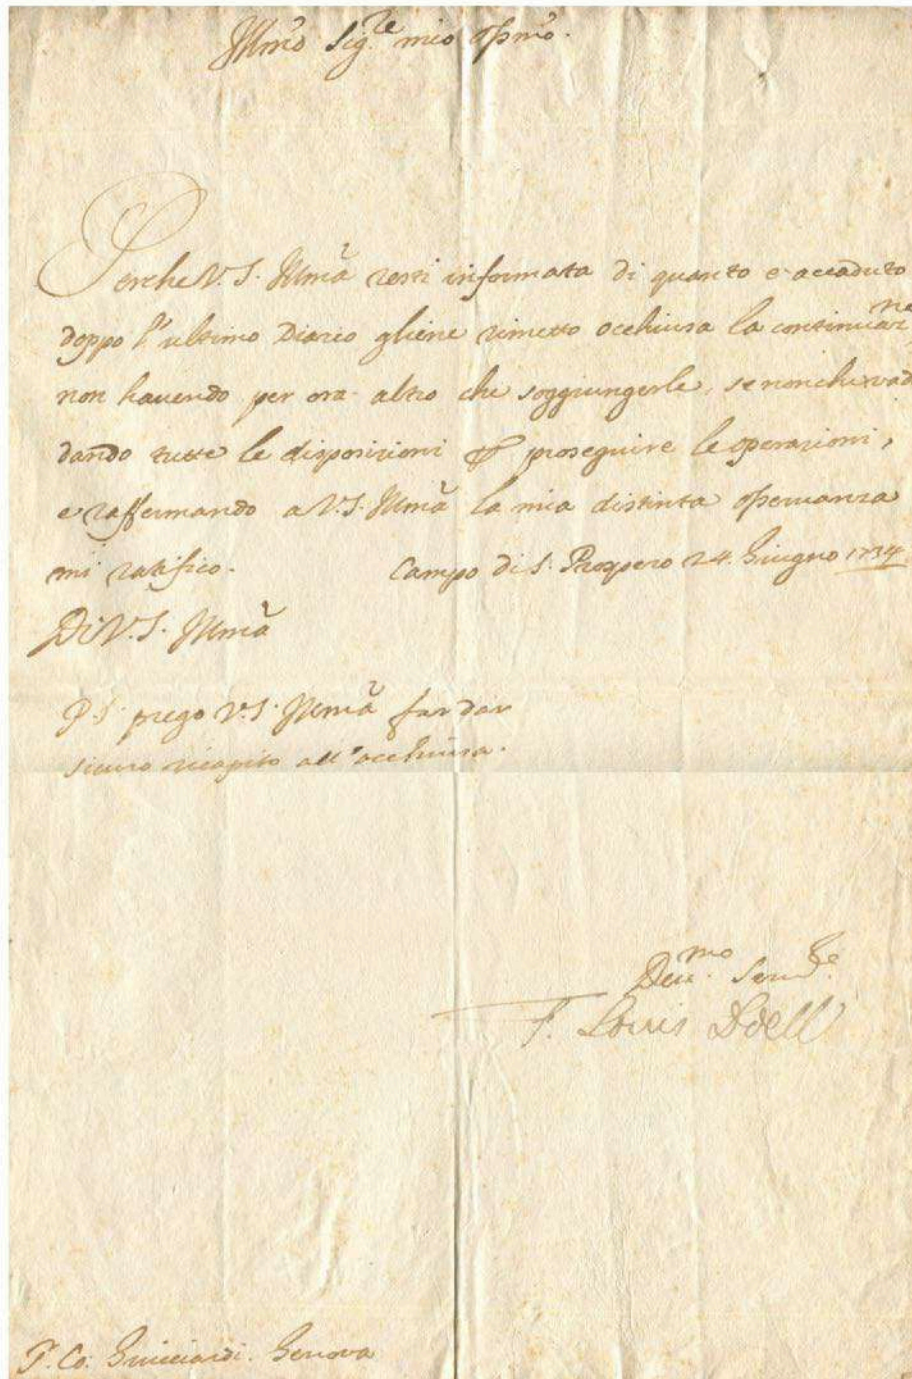 Illmo Sig.re mio Ossmo.
Perche V. S. Illma resti informata di quanto e accaduto
doppo l'ultimo Diario gliene rimetto occhiusa la continuazne,
non havendo per ora altro che soggiungerle, se non che vad
dando tutte le disposizioni per proseguire le operazioni,
e raffermando a V. S. Illma la mia distinta osservanza
mi ratifico. Campo di S. Prospero 24. Giugno 1734
Di V. S. Illma
P. S. prego V. S. Illma far dar
sicuro ricapito all'occhiusa.
Deu.mo Seru.re
F. Louis
Co. Guicciardi. Genova